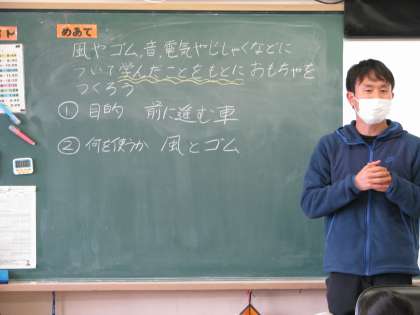 めあて
風やゴム、音、電気やじしゃくなどに
ついて学んだことをもとに おもちゃを
つくろう
① 目的 前に進む車
② 何を使うか 風とゴム